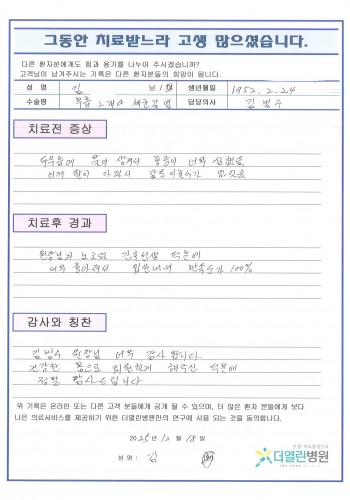 그동안 치료받느라 고생 많으셨습니다.
다른 환자분에게도 힘과 용기를 나누어 주시겠습니까?
고객님이 남겨주시는 기록은 다른 환자분들의 희망이 됩니다.
성 명 김 남 생년월일 1952. 2. 24
수술명 무릎 담당의사 김범수
치료전 증상
물이 생겨서 통증이 너무
어깨 아파서
치료후 경과
원장님의 노고와 간호선생 덕분에
너무 좋아져서 만족도가 100%
감사와 칭찬
김범수 원장님 너무 감사합니다.
건강한 몸으로 퇴원하게 해주신 덕분에
정말 감사드립니다
위 기록은 온라인 또는 다른 고객 분들에게 공개 될 수 있으며, 더 많은 환자 분들에게 보다
나은 의료서비스를 제공하기 위한 더열린병원만의 연구에 사용 되는 것을 동의합니다.
2025년 12월 18일
성 명 : 김
더열린병원